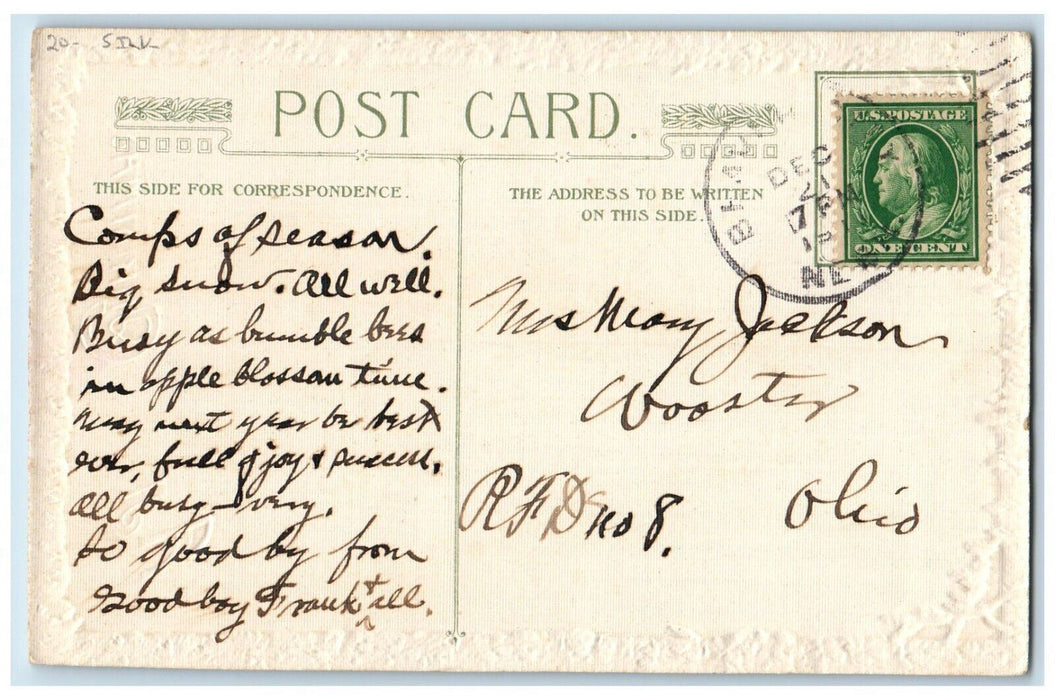 20-
POST CARD.
THIS SIDE FOR CORRESPONDENCE.
Comps of season.
Big snow. All well.
Busy as bumble bees
in apple blossom time.
May next year be best
ever, full of joy & success.
All busy - very.
So good by from
Good boy Frank & all.
THE ADDRESS TO BE WRITTEN
ON THIS SIDE.
U.S. POSTAGE
ONE CENT
DEC
21
7 PM
Mrs Mary Jackson
Wooster
RFD No 8.
Ohio